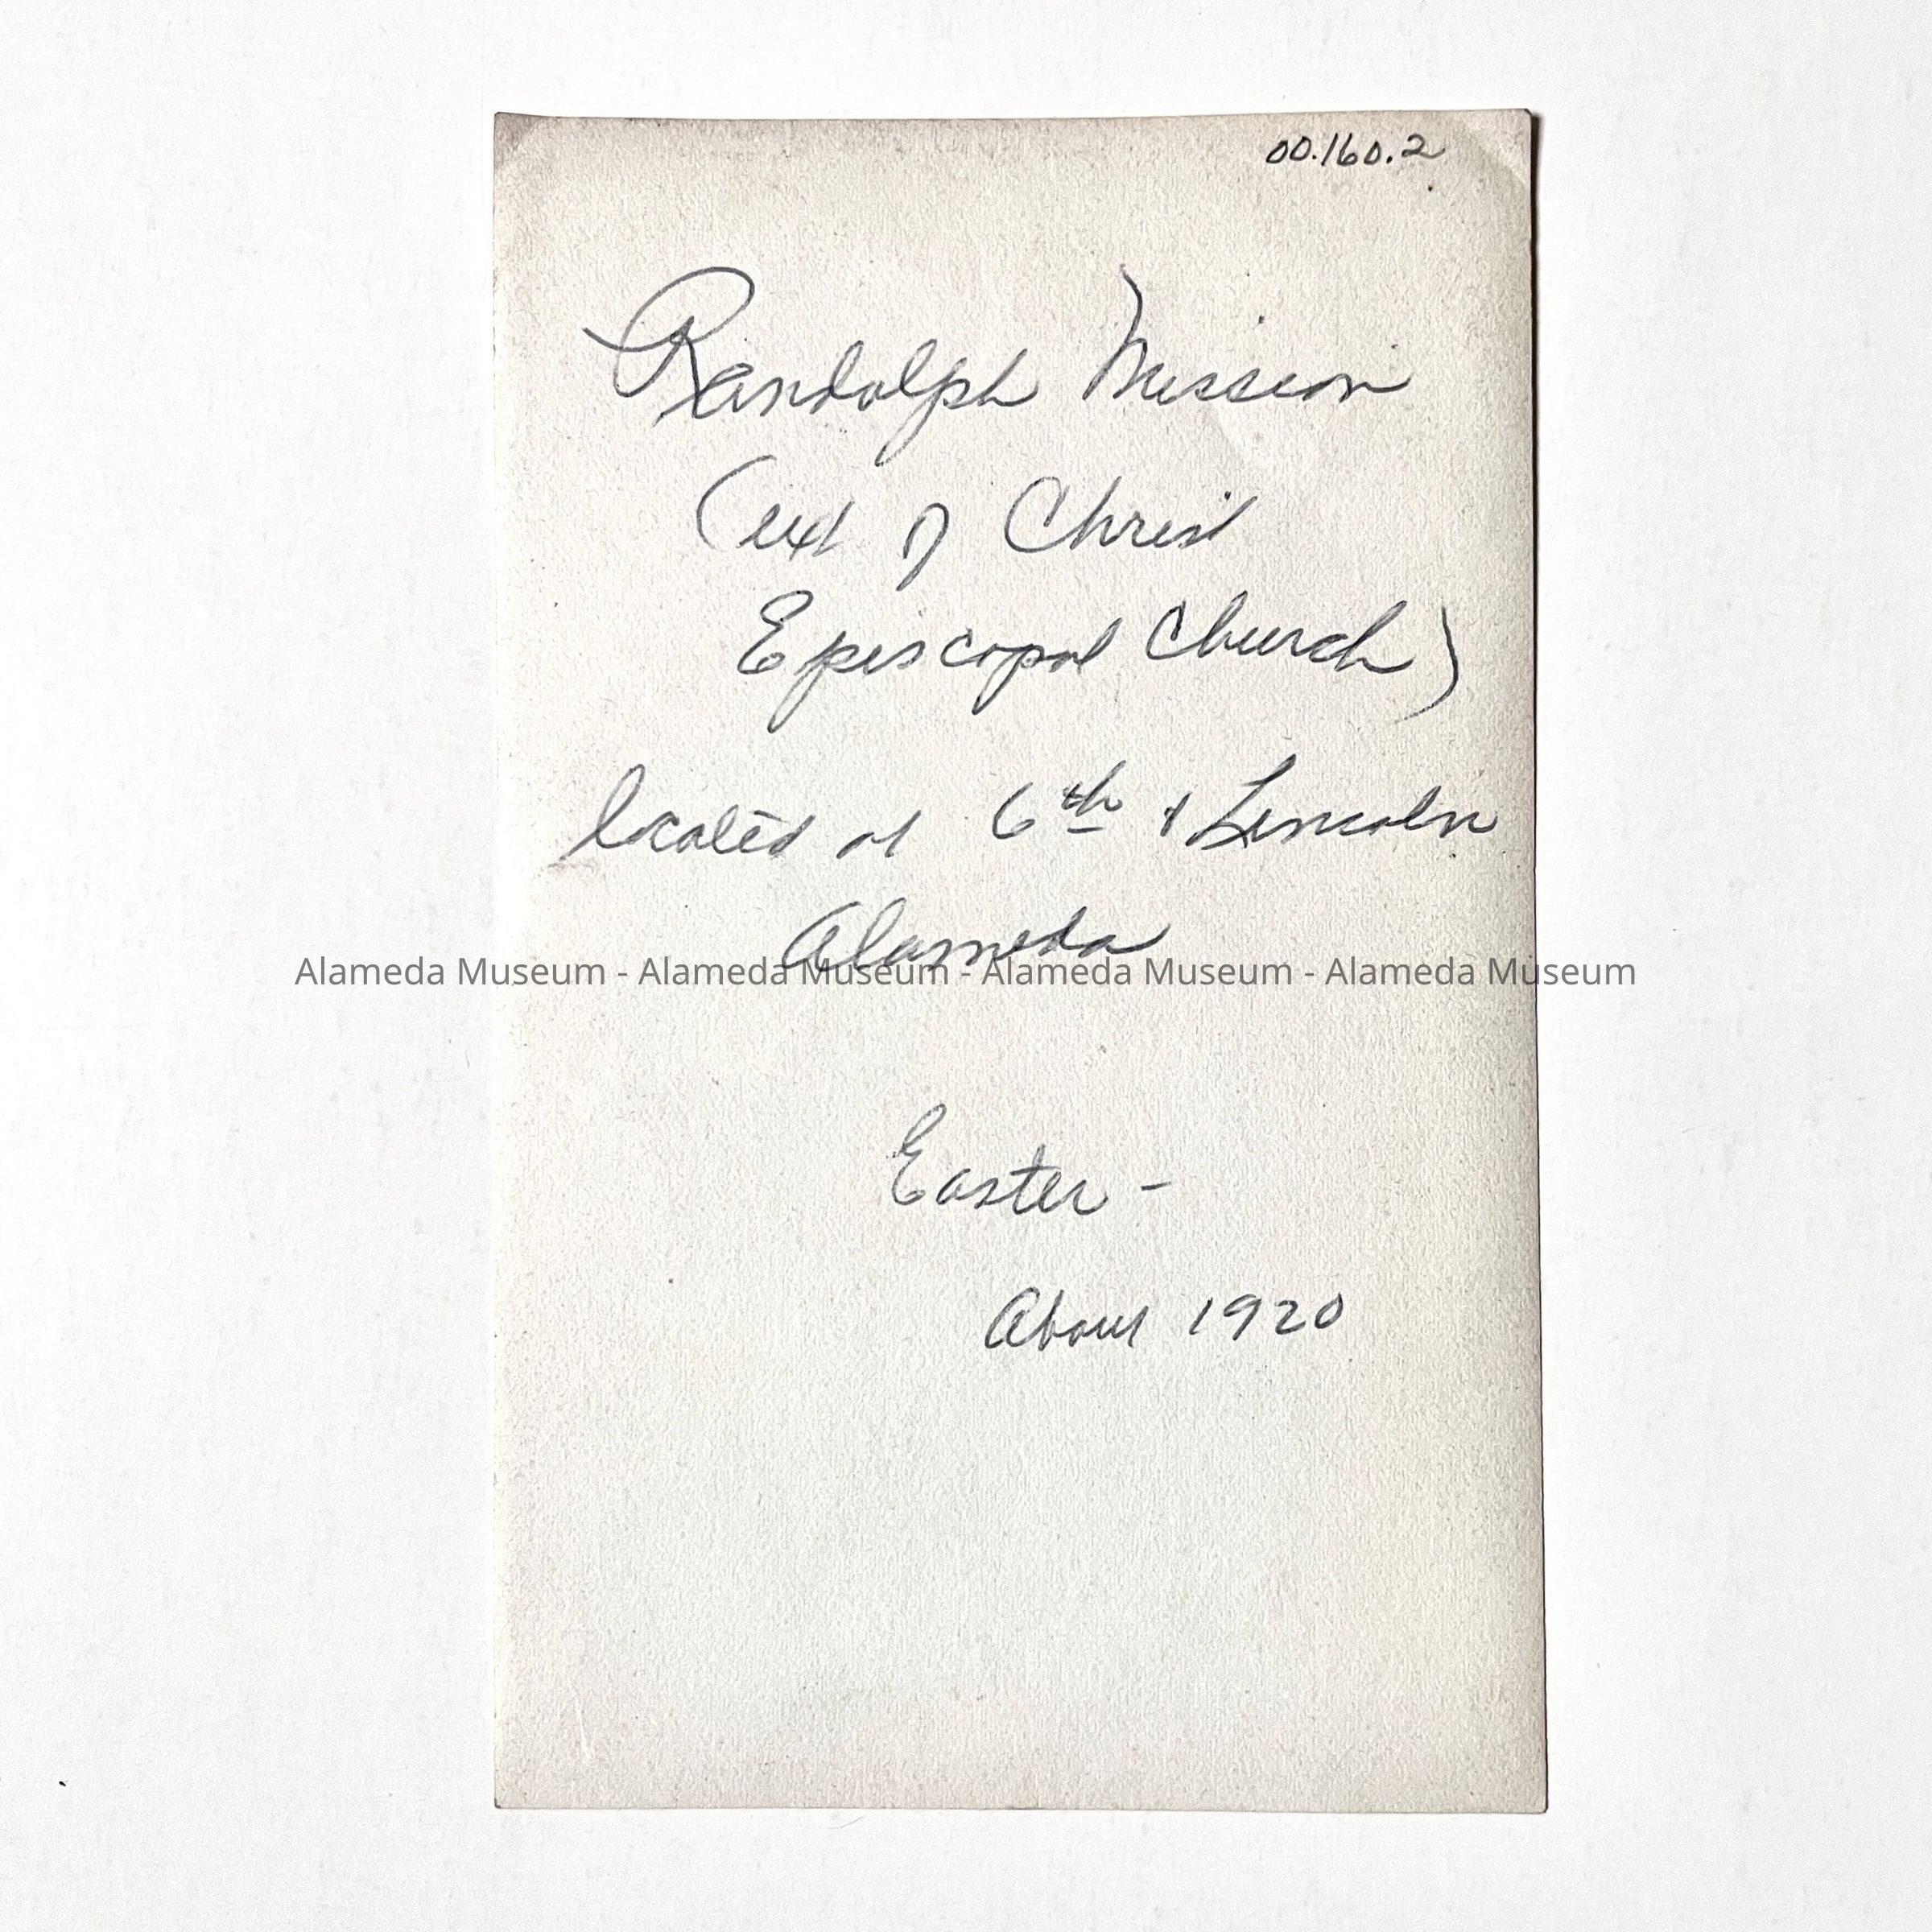 00.160.2
Randolph Mission
(ext of Christ
Episcopal Church)
located at 6th & Lincoln
Alameda
Alameda Museum - Alameda Museum - Alameda Museum - Alameda Museum
Easter -
About 1920